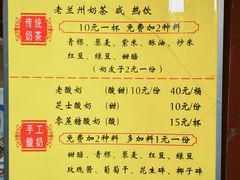 老兰州奶茶 咸 热饮
传统
奶茶
10元一杯 免费加2种料
青稞、葱麦、紫米、酥油、炒米
红豆、绿豆、甜醅
(奶皮子2元一份)
老酸奶 (甜) 10元/份 40元/桶
芝士酸奶 (甜) 10元/份
零蔗糖酸奶 15元/杯
手工
酸奶
免费加2种料 多加料1元一份
甜醅、青稞、葱麦、红豆、绿豆
玫瑰酱、葡萄干、花生碎、椰子碎